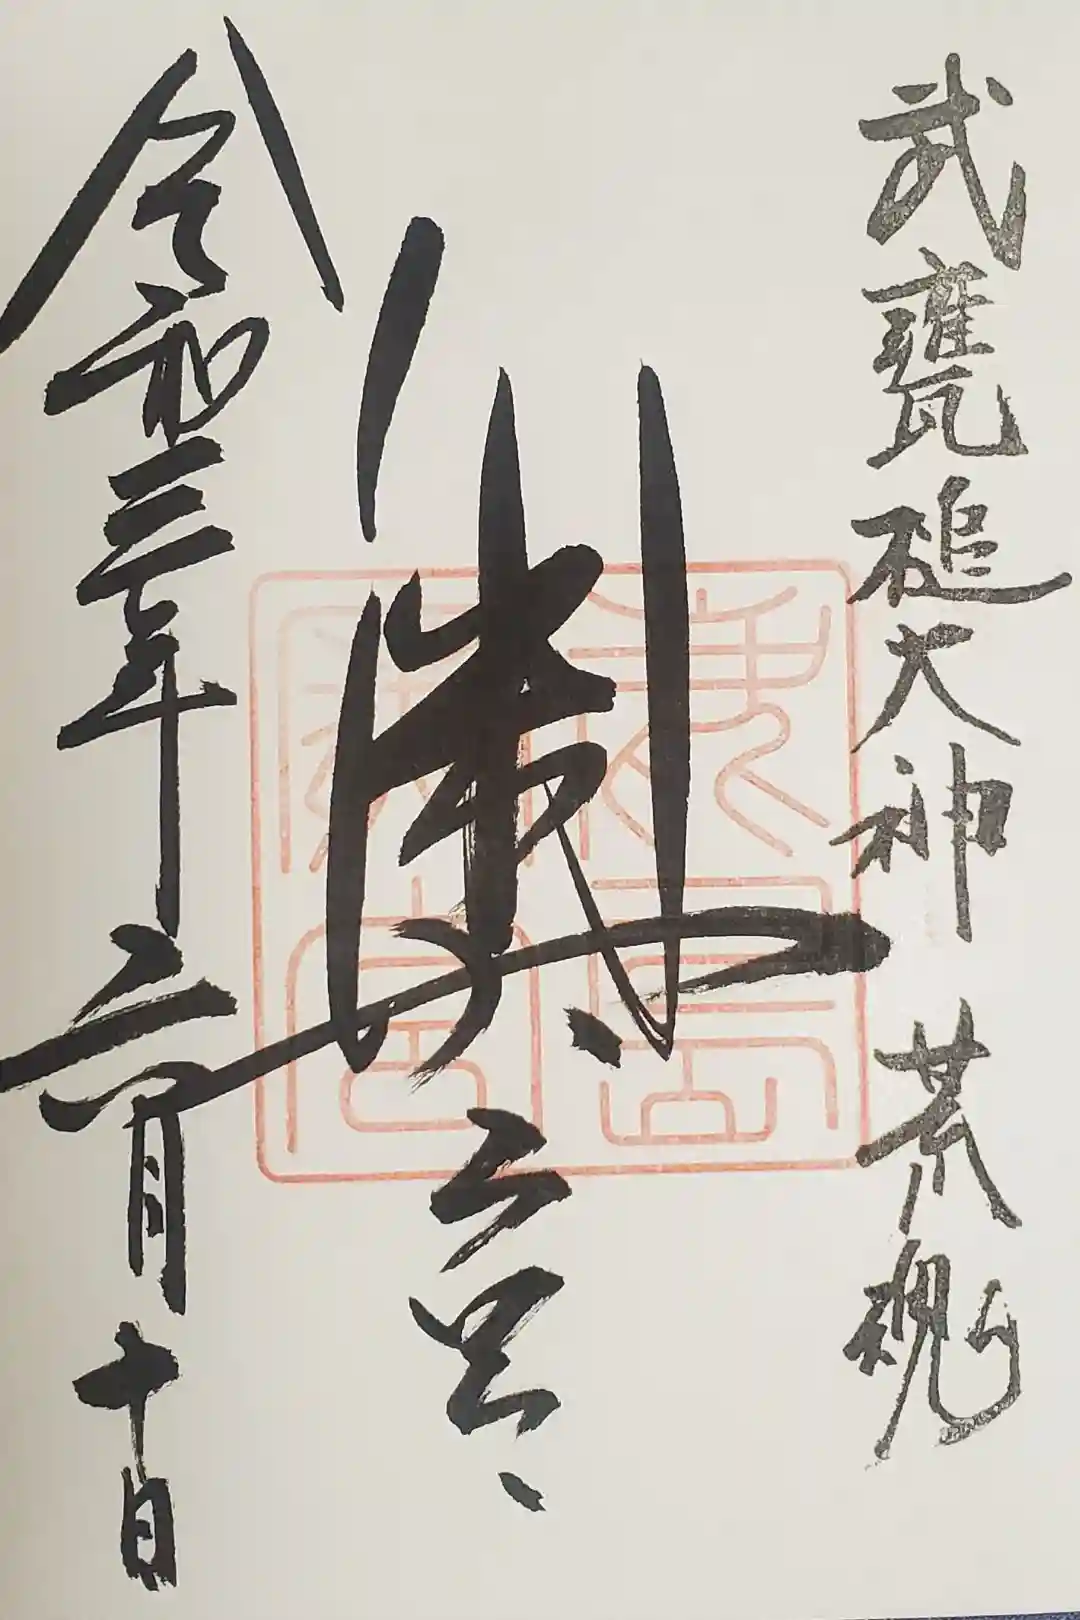 武甕槌大神 荒魂
奥宮
令和三年二月十日
鹿島
神宮